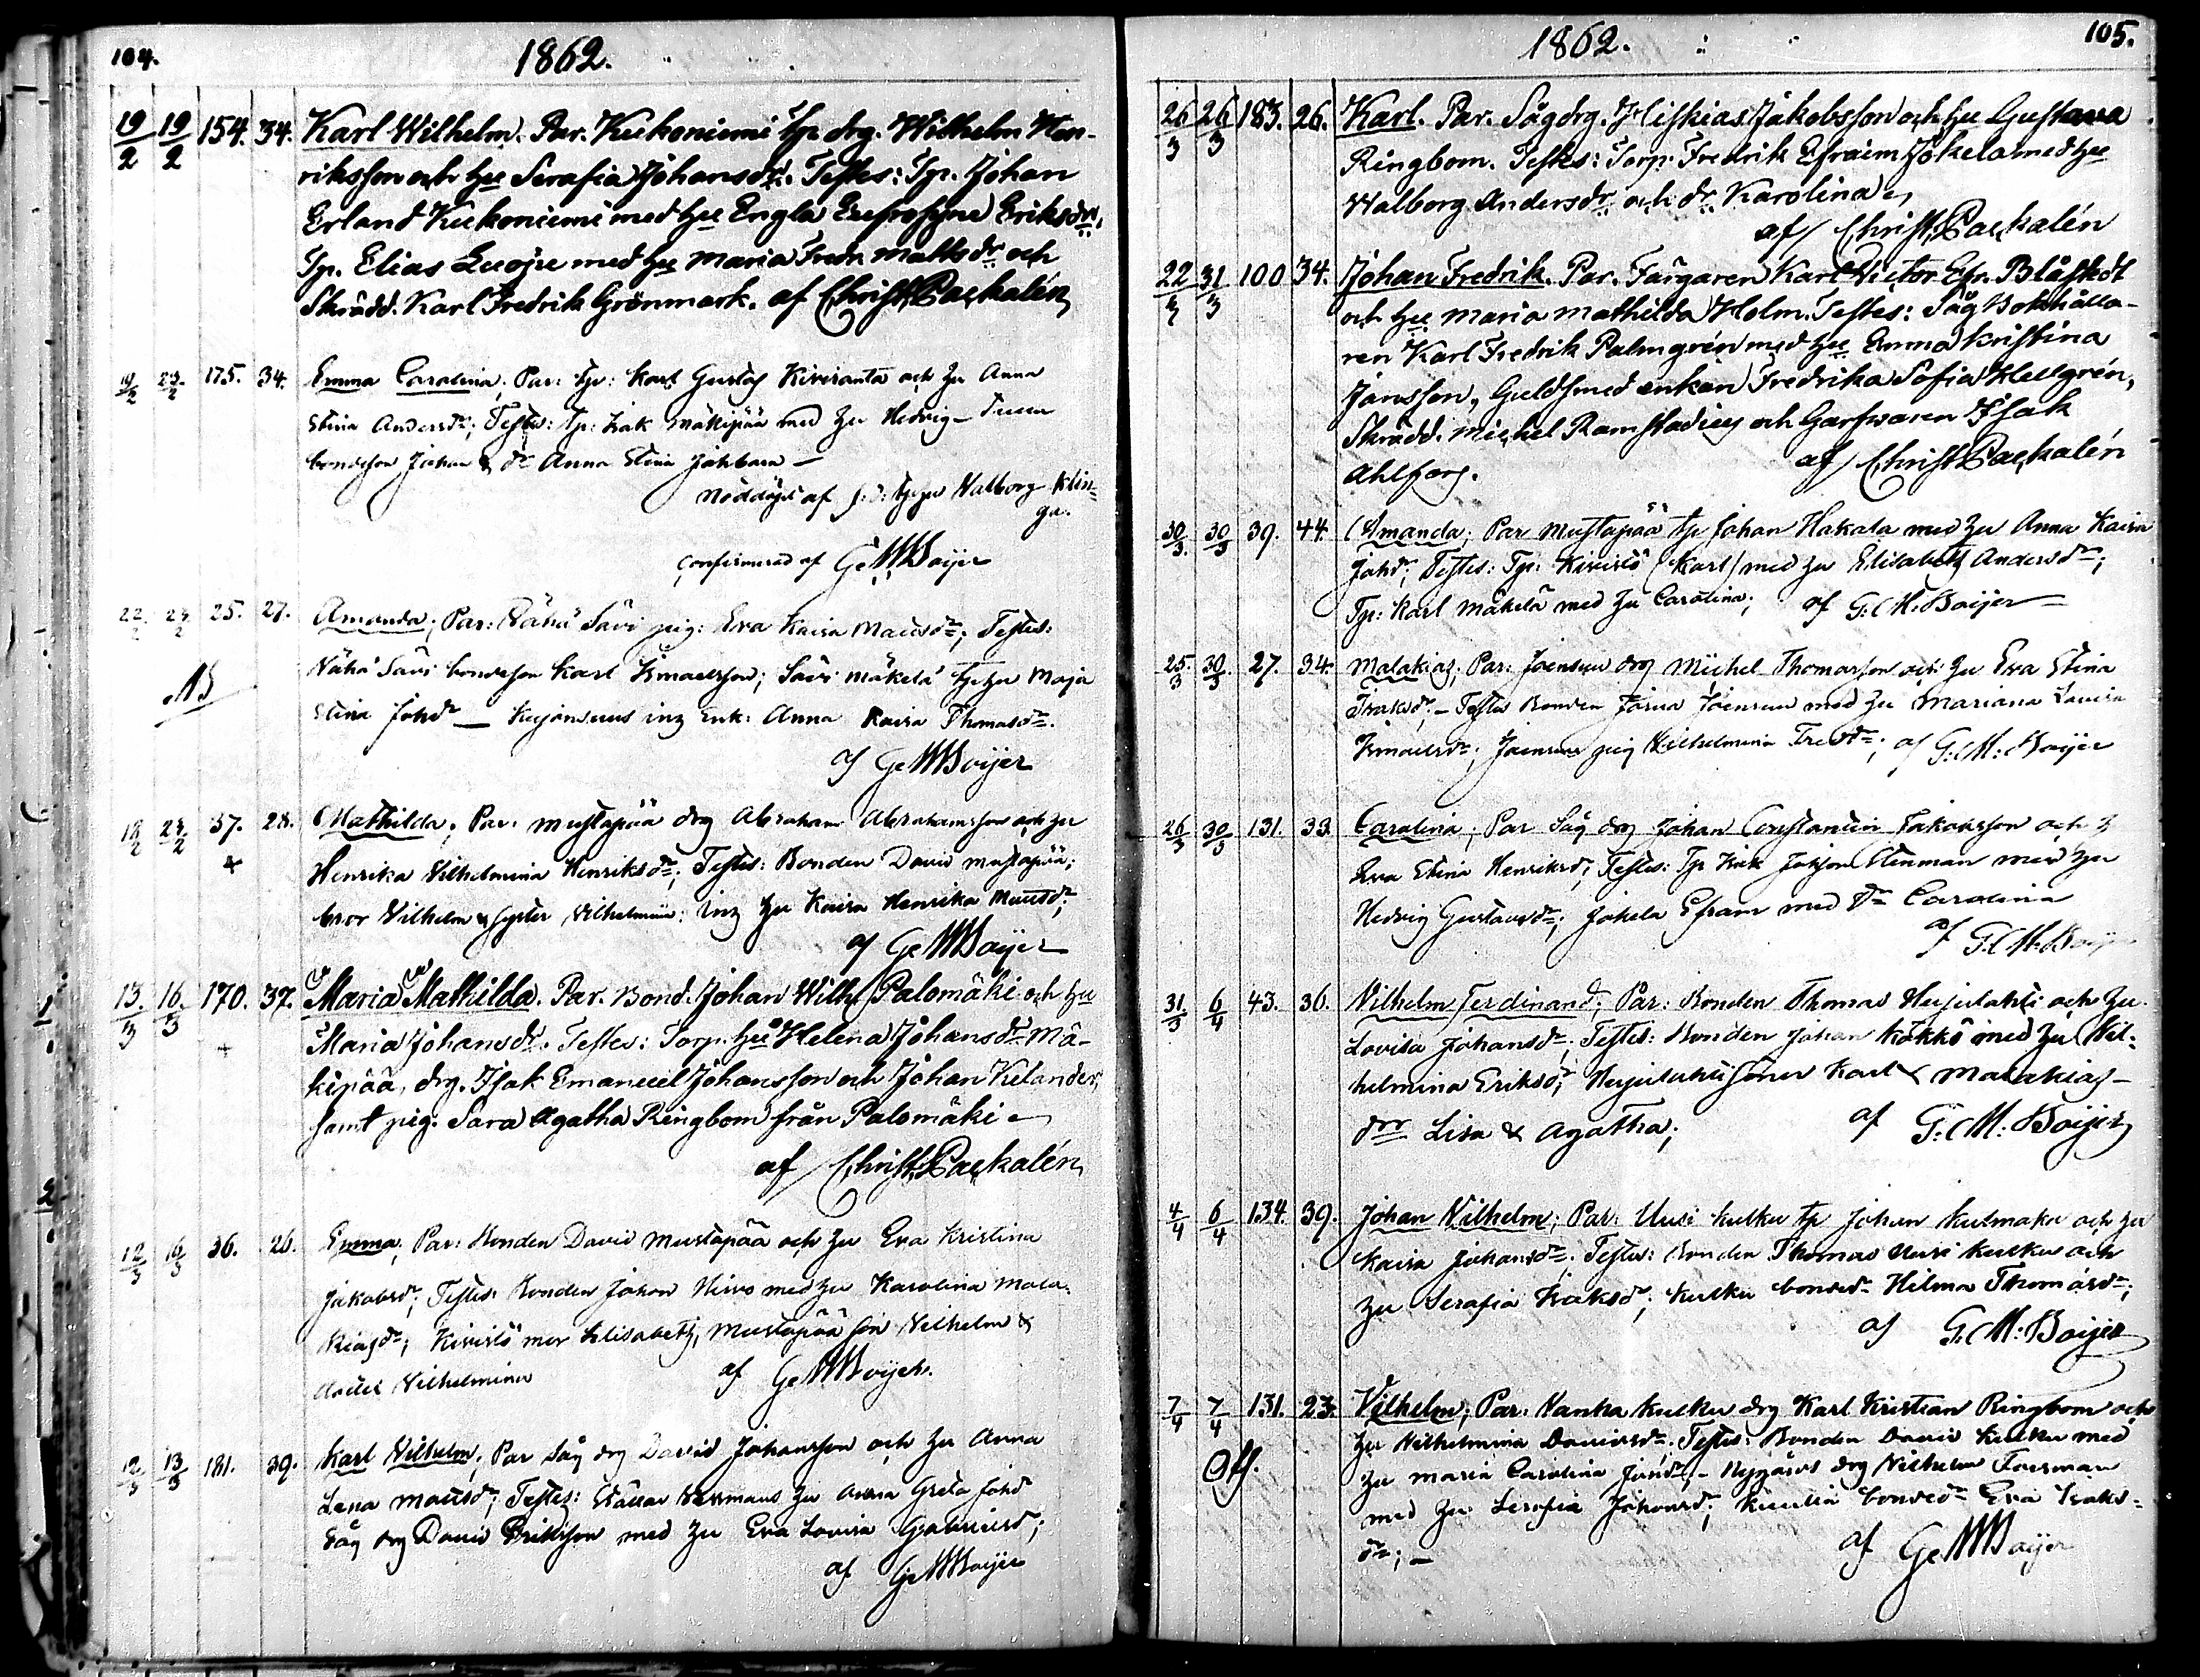 104.
1862.
19/2 19/2 154. 34. Karl Wilhelm. Par. Kukoniemi tp drg. Wilhelm Hen-
riksson och hu Serafia Johansdr. Testes: Tp. Johan
Erland Kukoniemi med hu Engla Eufrosyne Eriksdr,
Tp. Elias med hu Maria Fredr. Mattsdr och
Skrädd. Karl Fredrik Grönmark. af Christ. Paçkalén
19/2 23/2 175. 34. Emma Carolina; Par: tp: Karl Gustaf Kiviranta och hu Anna
Stina Andersdr; Testes: tp: Isak Mäkipää med hu Hedvig
bondeson Johan & dr Anna Stina
Nöddöpt af tp hu Walborg Klin-
ga.
confirmerad af G. M. Boijer
22/2 23/2 25. 27. Amanda; Par: Vähä Sävi pig: Eva Kaisa Mattsdr; Testes:
Vähä Sävi bondeson Karl Ismaelsson; Sävi Mäkelä tp hu Maja
Stina Johdr — inh Enk: Anna Kaisa Thomasdr.
af G. M. Boijer
18/2 23/2 37. 28. Mathilda; Par: Mustapää drg Abraham Abrahamsson och hu
Henrika Vilhelmina Henriksdr; Testes: Bonden David Mustapää;
bror Vilhelm & syster Vilhelmina: inh hu Kaisa Henrika Mattsdr;
af G. M. Boijer
13/3 16/3 170. 37. Maria Mathilda. Par. Bond. Johan Wilh. Palomäki och hu
Maria Johansdr. Testes: Torp. hu Helena Johansdr Mä-
kipää, drg. Isak Emanuel Johansson och Johan Kelander,
samt pig. Sara Agatha Ringbom från Palomäki
af Christ. Paçkalén
12/3 16/3 36. 26. Emma; Par: Bonden David Mustapää och hu Eva Kristina
Jakobsdr; Testes: Bonden Johan Hirvo med hu Karolina Mala-
kiasdr; Kivistö mor Elisabeth, Mustapää son Vilhelm &
Vilhelmina af G. M. Boijer.
12/3 13/3 181. 39. Karl Vilhelm; Par Såg drg David Johansson och hu Anna
Lena Mattsdr; Testes: hu Anna Greta Johdr
Såg drg David Eriksson med hu Eva Lovisa Gabrielsdr;
af G. M. Boijer
1862.
105.
26/3 26/3 183. 26. Karl. Par. Sågdrg. Hiskias Jakobsson och hu Gustava
Ringbom. Testes: Torp. Fredrik Efraim Jokela med hu
Walborg Andersdr och dr Karolina
af Christ. Paçkalén
22/3 31/3 100 34. Johan Fredrik. Par. Färgaren Karl Victor Efr. Blåstedt
och hu Maria Mathilda Holm. Testes: Såg Bokhålla-
ren Karl Fredrik Palmgrén med hu Emma Kristina
Jansson, Guldsmed enkan Fredrika Sofia Hellgrén,
Skrädd. Michel Ramstadius och Garfvaren Isak
Ahlfors. af Christ. Paçkalén
30/3 30/3 39. 44. Amanda; Par Mustapää tp Johan Hakala med hu Anna Kaisa
Johdr; Testes: Tp: Kivistö (Karl) med hu Elisabeth Andersdr;
Tp: Karl Mäkelä med hu Carolina; af G. M. Boijer
25/3 30/3 27. 34. Malakias; Par: Joensuu drg Michel Thomasson och hu Eva Stina
Isaksdr; — Testes Bonden Josua Joensuu med hu Mariana Lovisa
Ismaelsdr; Joensuu pig Vilhelmina Fredr; af G. M. Boijer
26/3 30/3 131. 33. Carolina; Par Såg drg Johan Constantin Jakobsson och h
Eva Stina Henriksdr; Testes: Tp Isak Stenman med hu
Hedvig Gustavsdr; Jokela Efraim med dr Carolina
af G. M. Boijer
31/3 6/4 43. 36. Vilhelm Ferdinand; Par: Bonden Thomas Hujulahti och hu
Lovisa Johansdr; Testes: Bonden Johan Kökkö med hu Vil-
helmina Eriksdr; Hujulahti söner Karl & Malakias —
drr Lisa & Agatha; af G. M. Boijer
4/4 6/4 134. 39. Johan Vilhelm; Par: Uusi Kulku tp Johan och hu
Kaisa Johansdr; Testes: Bonden Thomas Uusi Kulku och
hu Serafia Isaksdr; Kulku bondedr Hilma Thomasdr;
af G. M. Boijer
7/4 7/4 131. 23. Vilhelm; Par: Vanha Kulku drg Karl Kristian Ringbom och
hu Vilhelmina Davidsdr. Testes: Bonden David Kulku med
hu Maria Carolina — Nygård drg Vilhelm Forsman
med hu Serafia Johansdr; bondedr Eva Isaks-
dr; — af G. M. Boijer